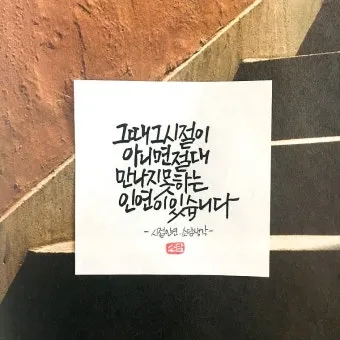 그때 그 시절이
아니면 절대
만나지 못하는
인연이 있습니다
- 시절인연. 소담생각 -
소담